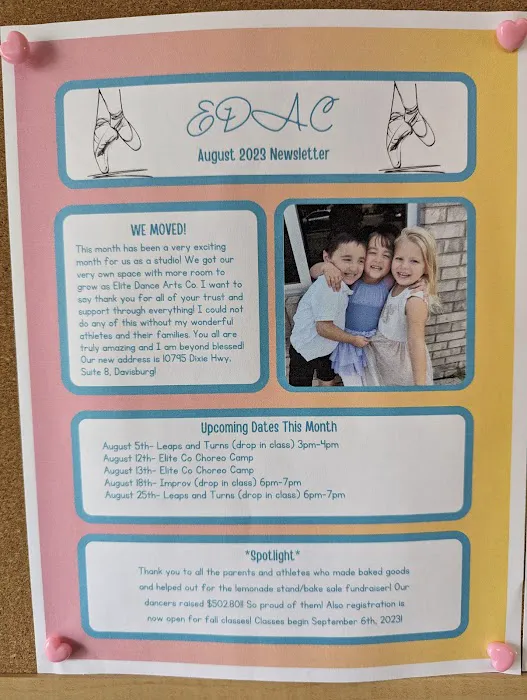 EDAC
August 2023 Newsletter
WE MOVED!
This month has been a very exciting
month for us as a studio! We got our
very own space with more room to
grow as Elite Dance Arts Co. I want to
say thank you for all of your trust and
support through everything! I could not
do any of this without my wonderful
athletes and their families. You all are
truly amazing and I am beyond blessed!
Our new address is 10795 Dixie Hwy.
Suite B, Davisburg!
Upcoming Dates This Month
August 5th- Leaps and Turns (drop in class) 3pm-4pm
August 12th- Elite Co Choreo Camp
August 13th- Elite Co Choreo Camp
August 18th- Improv (drop in class) 6pm-7pm
August 25th- Leaps and Turns (drop in class) 6pm-7pm
*Spotlight*
Thank you to all the parents and athletes who made baked goods
and helped out for the lemonade stand/bake sale fundraiser! Our
dancers raised $502.80!! So proud of them! Also registration is
now open for fall classes! Classes begin September 6th, 2023!